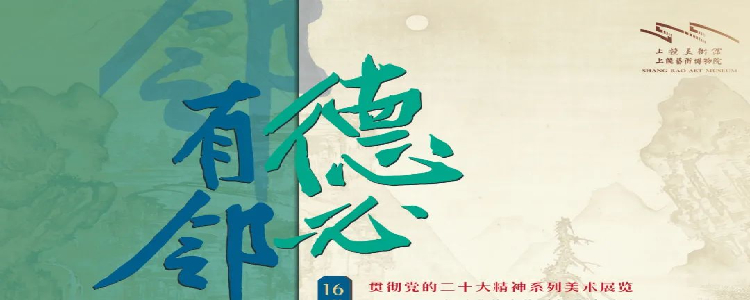 德必
有邻
邻
上饒美術館
上饒藝術博物院
SHANG RAO ART MUSEUM
16 贯彻党的二十大精神系列美术展览